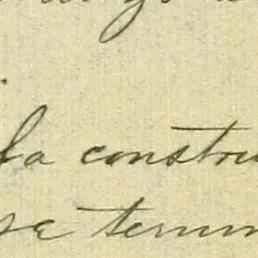 la constru
se termin